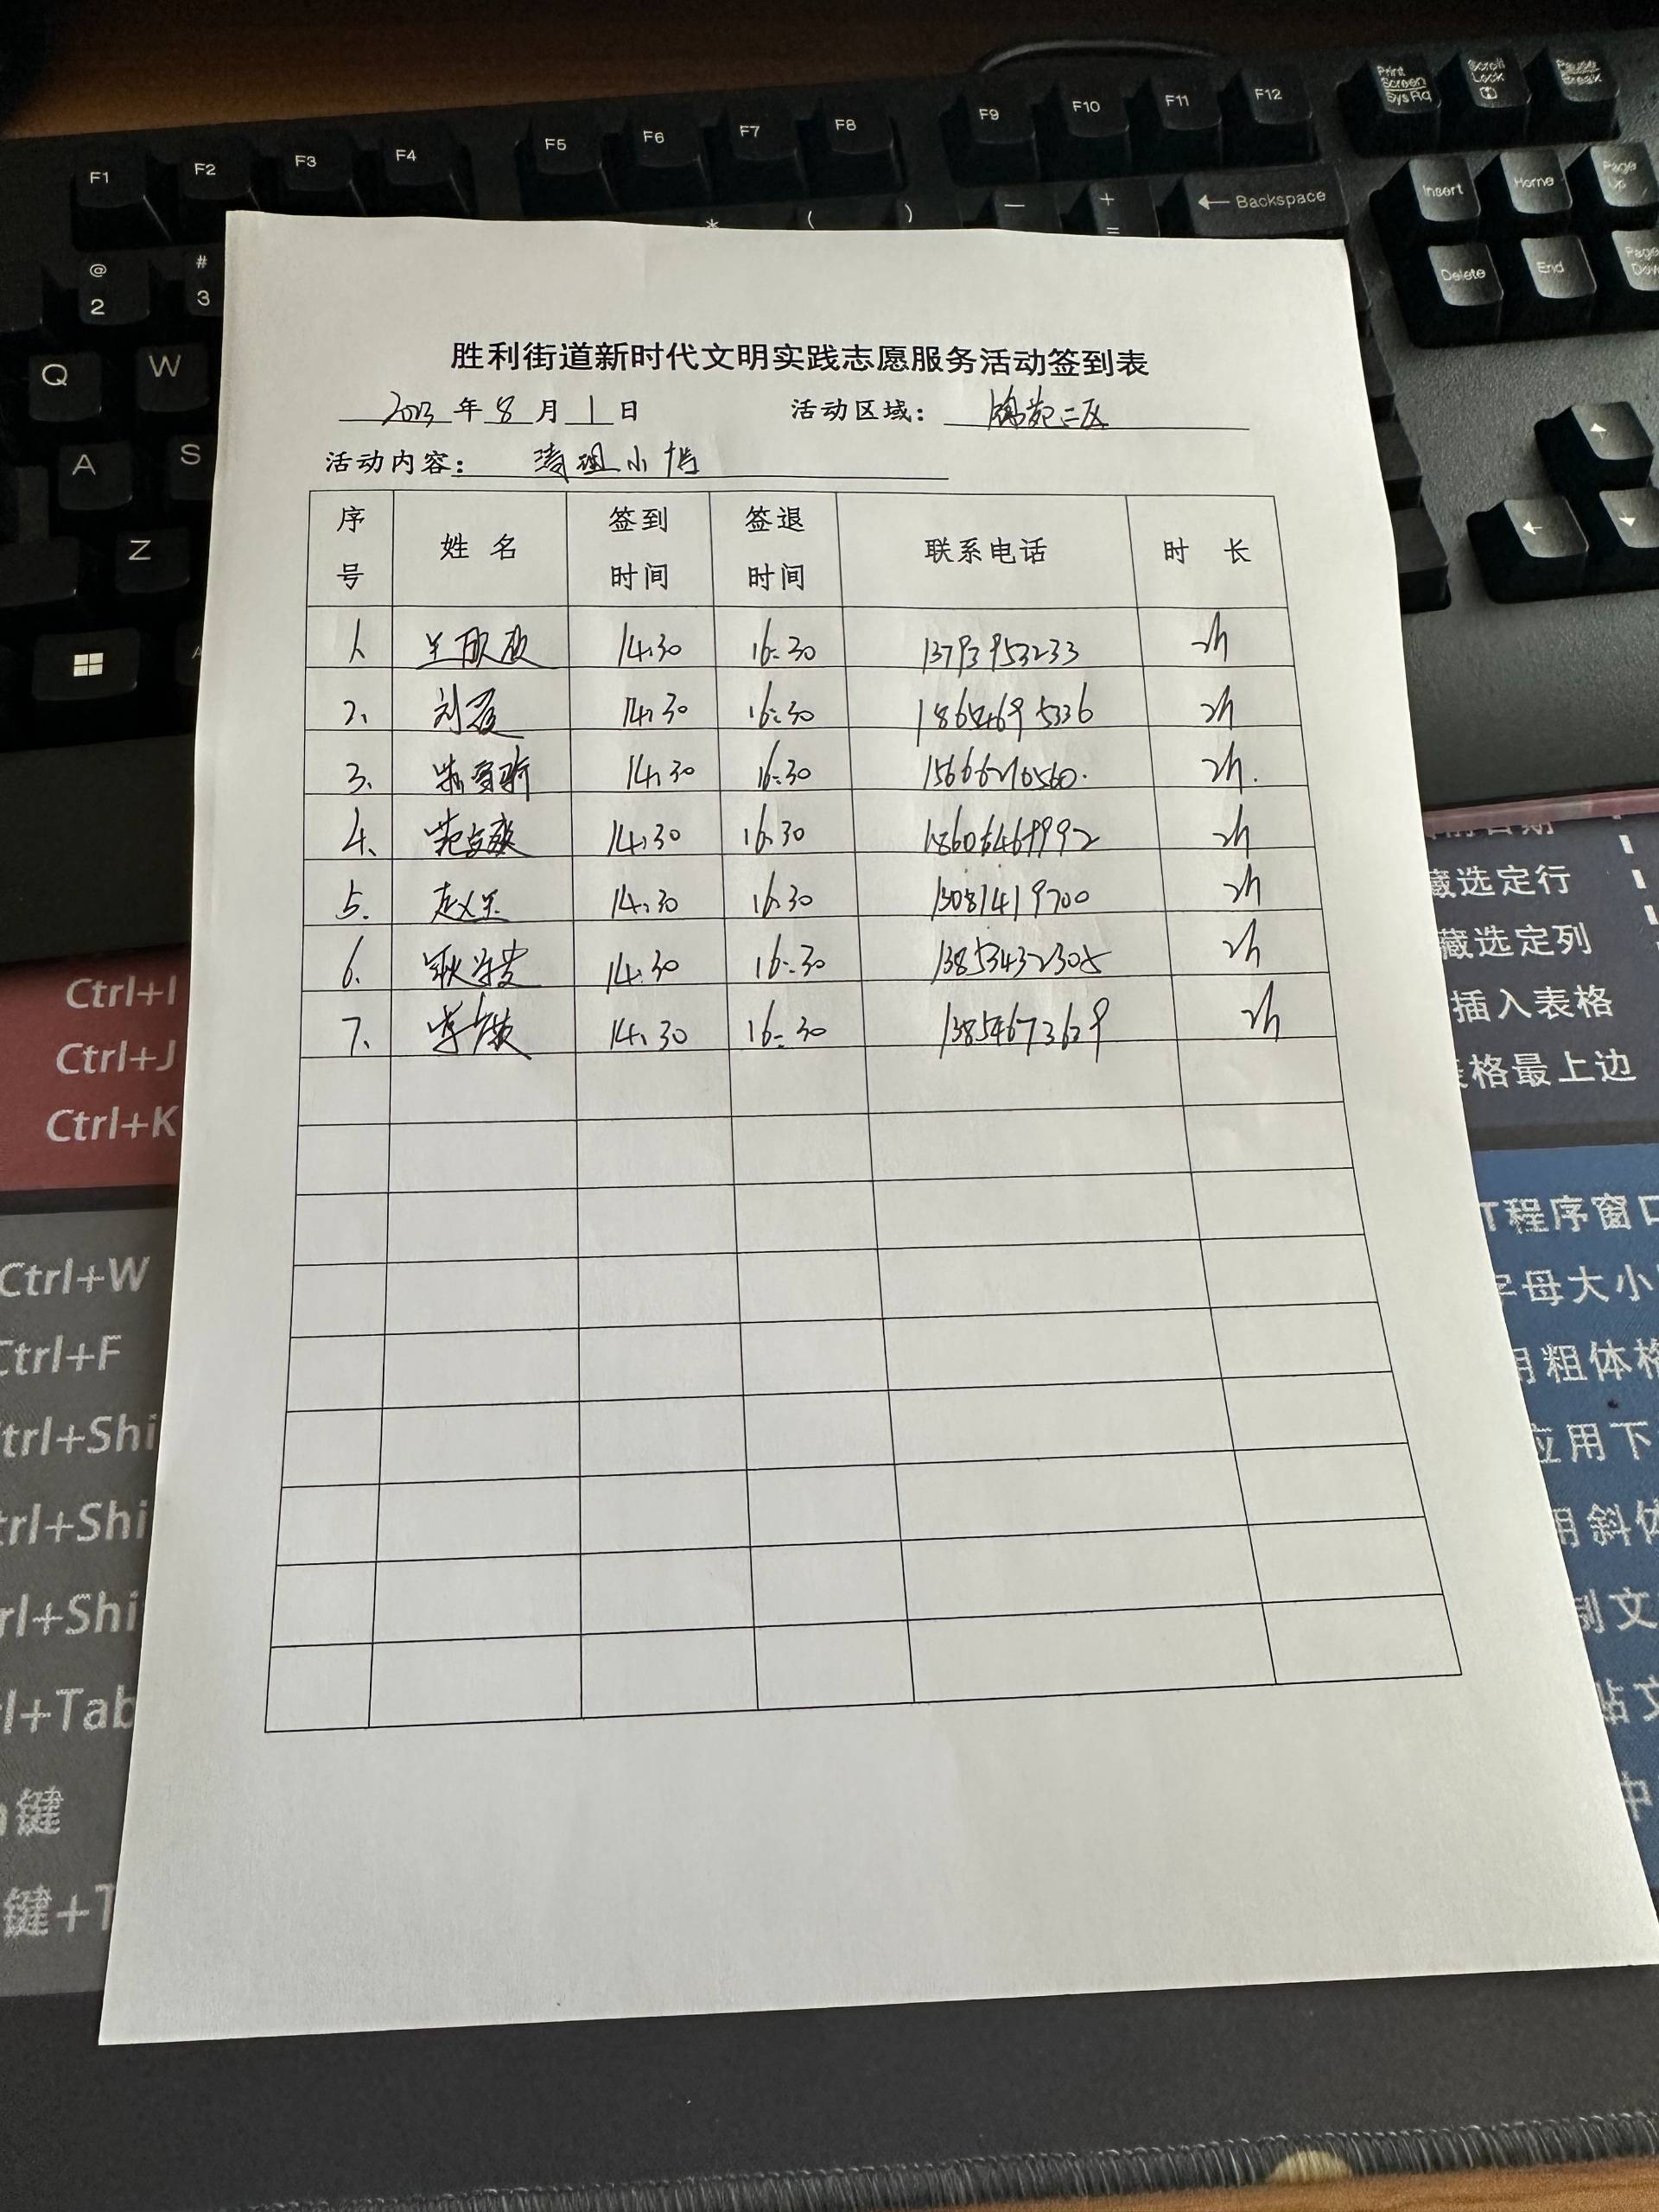 F1 F2 F3 F4 F5 F6 F7 F8 F9 F10 F11 F12 Print Screen SysRq Scroll Lock Pause Break
* ( ) — + = ← Backspace Insert Home Page Up
@ 2 # 3 Delete End
Q W
A S
Z
胜利街道新时代文明实践志愿服务活动签到表
2023年8月1日 活动区域：锦苑二区
活动内容：清理小广告
序号 姓名 签到时间 签退时间 联系电话 时长
1、 14:30 16:30 13793953233 2h
2、 14:30 16:30 18654695336 2h
3、 14:30 16:30 2h.
4、 14:30 16:30 2h
5. 14:30 16:30 13081419700 2h
6. 14:30 16:30 13853432305 2h
7. 14:30 16:30 13854673629 2h
藏选定行
藏选定列
插入表格
格最上边
T程序窗口
字母大小
用粗体格
应用下
用斜体
制文
贴文
中
Ctrl+I
Ctrl+J
Ctrl+K
Ctrl+W
Ctrl+F
Ctrl+Shi
Ctrl+Shi
Ctrl+Shi
Ctrl+Tab
键
键+T